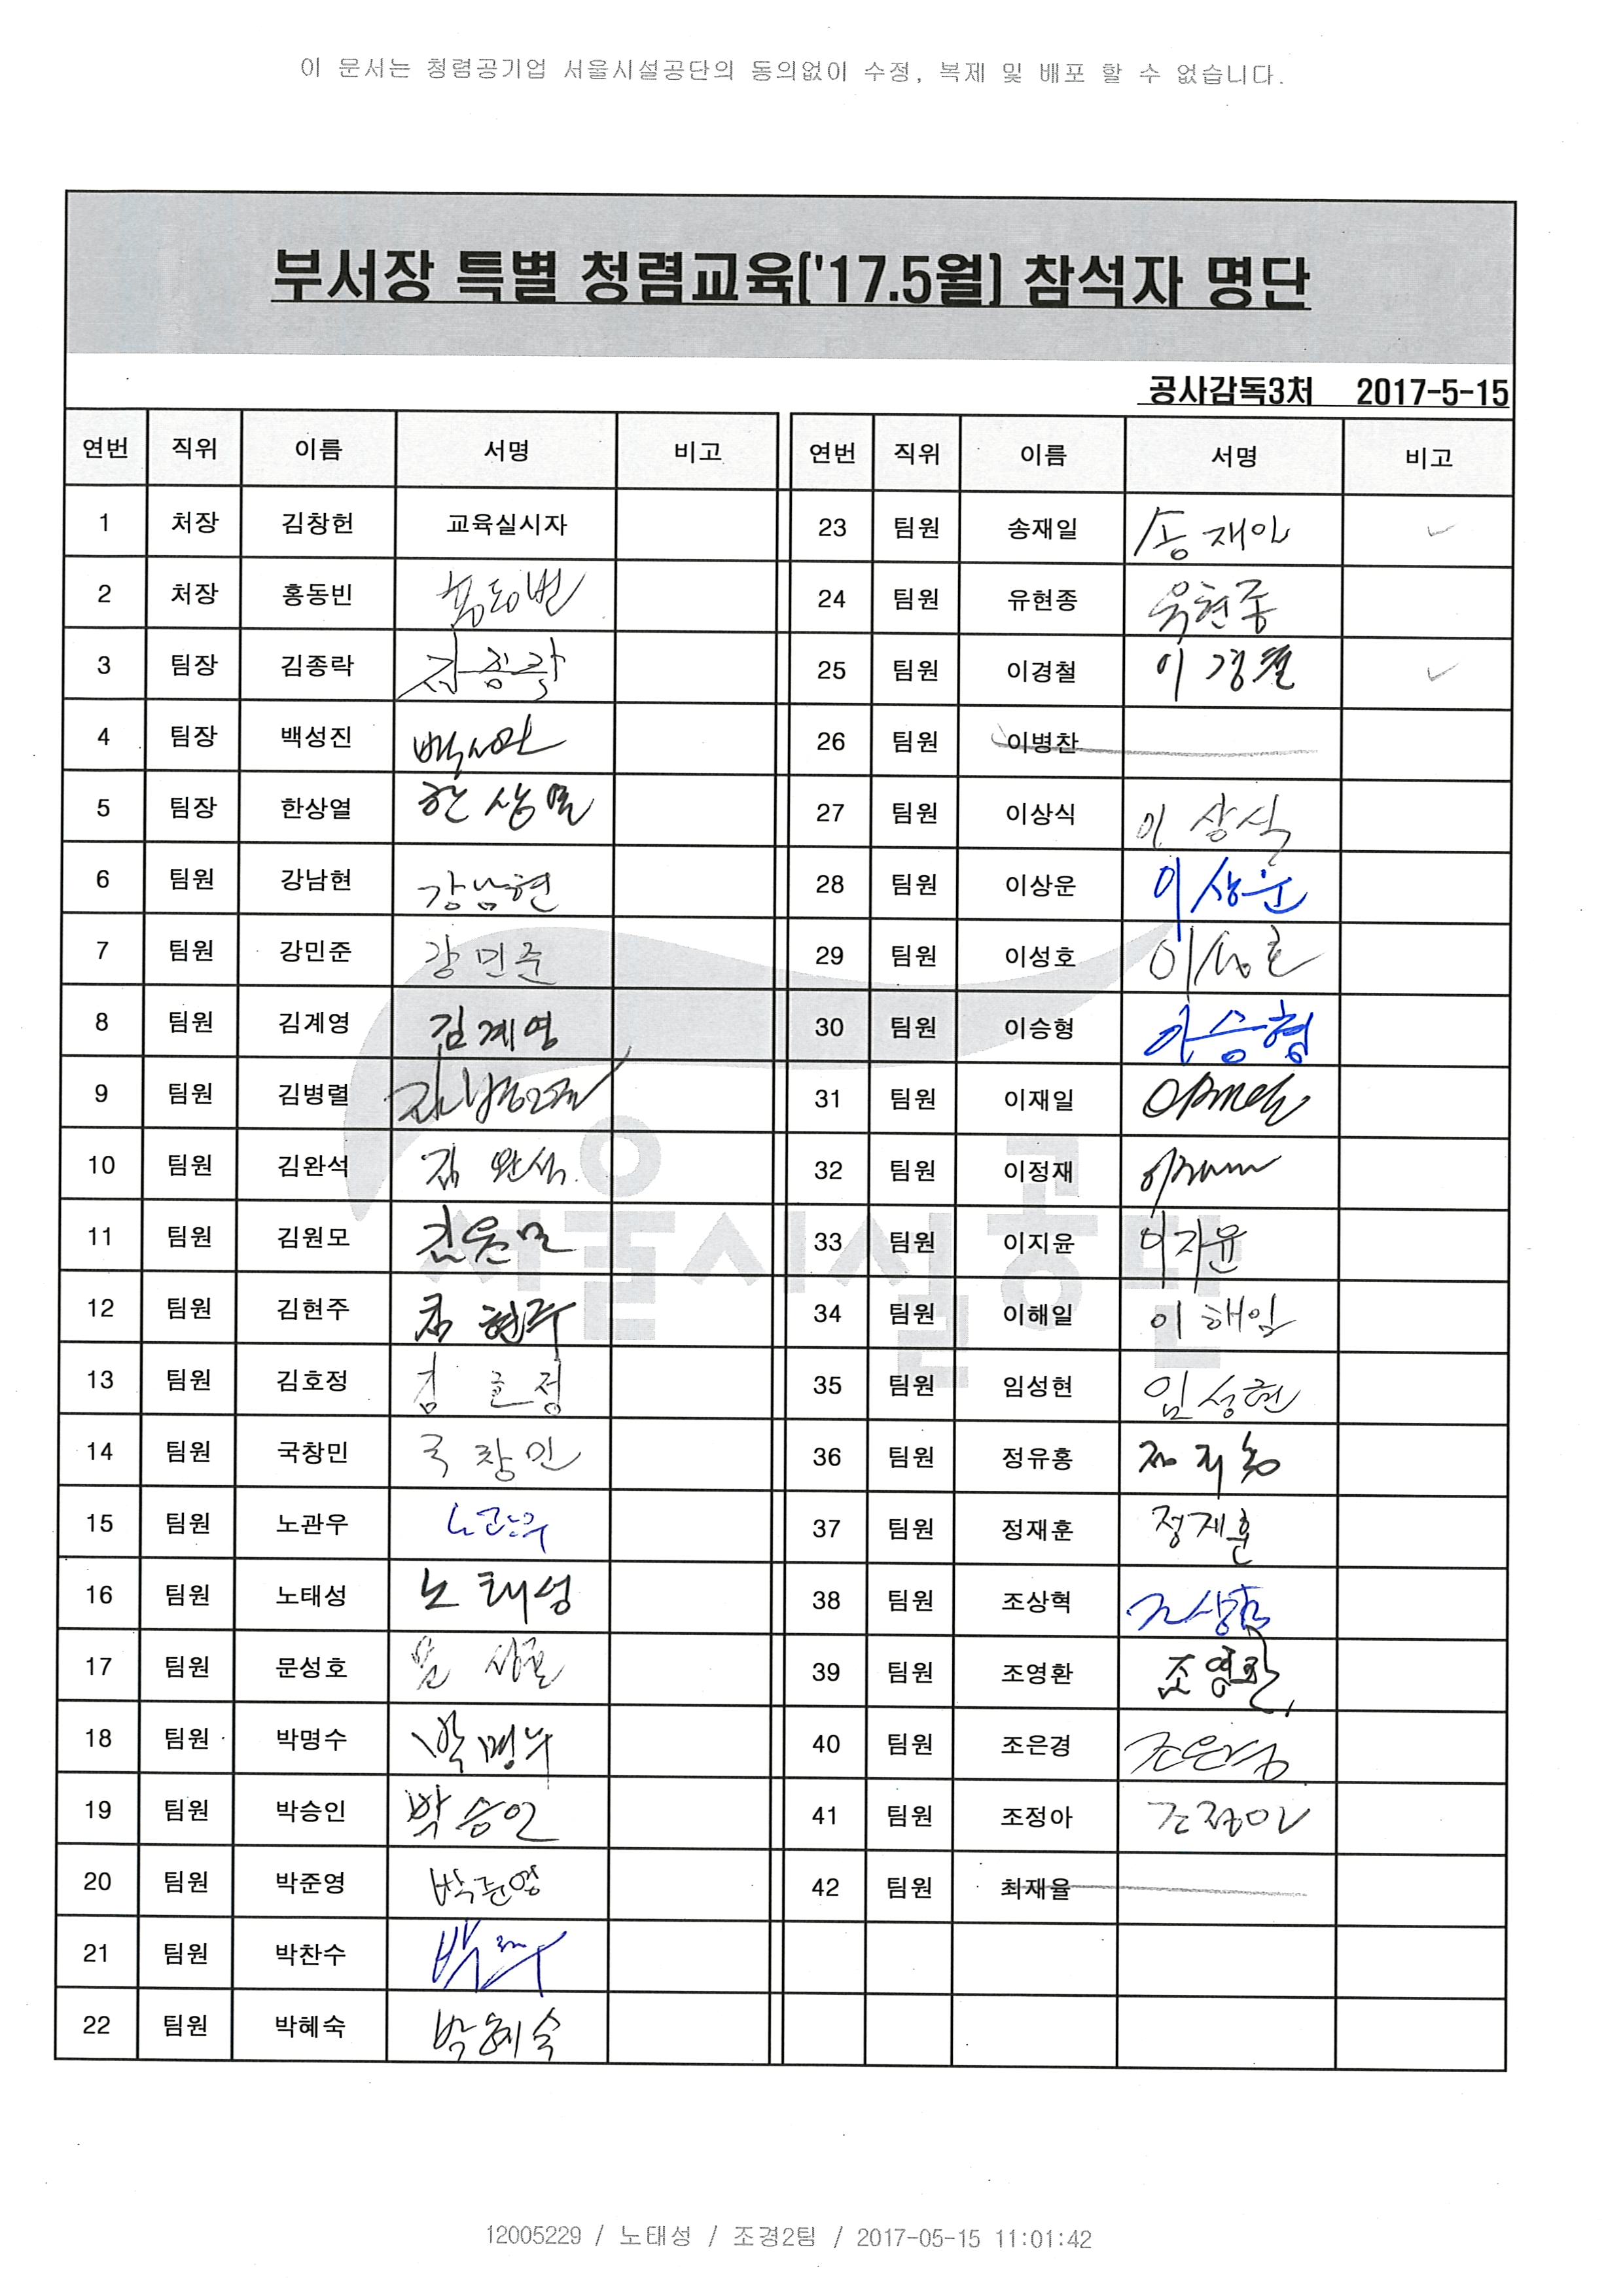 이 문서는 청렴공기업 서울시설공단의 동의없이 수정, 복제 및 배포 할 수 없습니다.
부서장 특별 청렴교육('17.5월) 참석자 명단
공사감독3처 2017-5-15
연번 직위 이름 서명 비고 연번 직위 이름 서명 비고
1 처장 김창헌 교육실시자 23 팀원 송재일 송재일
2 처장 홍동빈 홍동빈 24 팀원 유현종 유현종
3 팀장 김종락 김종락 25 팀원 이경철 이경철
4 팀장 백성진 26 팀원 이병찬
5 팀장 한상열 한상열 27 팀원 이상식 이상식
6 팀원 강남현 강남현 28 팀원 이상운 이상운
7 팀원 강민준 강민준 29 팀원 이성호 이성호
8 팀원 김계영 김계영 30 팀원 이승형 이승형
9 팀원 김병렬 31 팀원 이재일
10 팀원 김완석 김완석 32 팀원 이정재
11 팀원 김원모 김원모 33 팀원 이지윤 이지윤
12 팀원 김현주 김현주 34 팀원 이해일 이해일
13 팀원 김호정 김호정 35 팀원 임성현 임성현
14 팀원 국창민 국창민 36 팀원 정유홍
15 팀원 노관우 노관우 37 팀원 정재훈 정재훈
16 팀원 노태성 노태성 38 팀원 조상혁 조상혁
17 팀원 문성호 문성호 39 팀원 조영환 조영환
18 팀원 박명수 박명수 40 팀원 조은경 조은경
19 팀원 박승인 박승인 41 팀원 조정아 조정아
20 팀원 박준영 박준영 42 팀원 최재율
21 팀원 박찬수
22 팀원 박혜숙 박혜숙
서울시설공단
12005229 / 노태성 / 조경2팀 / 2017-05-15 11:01:42